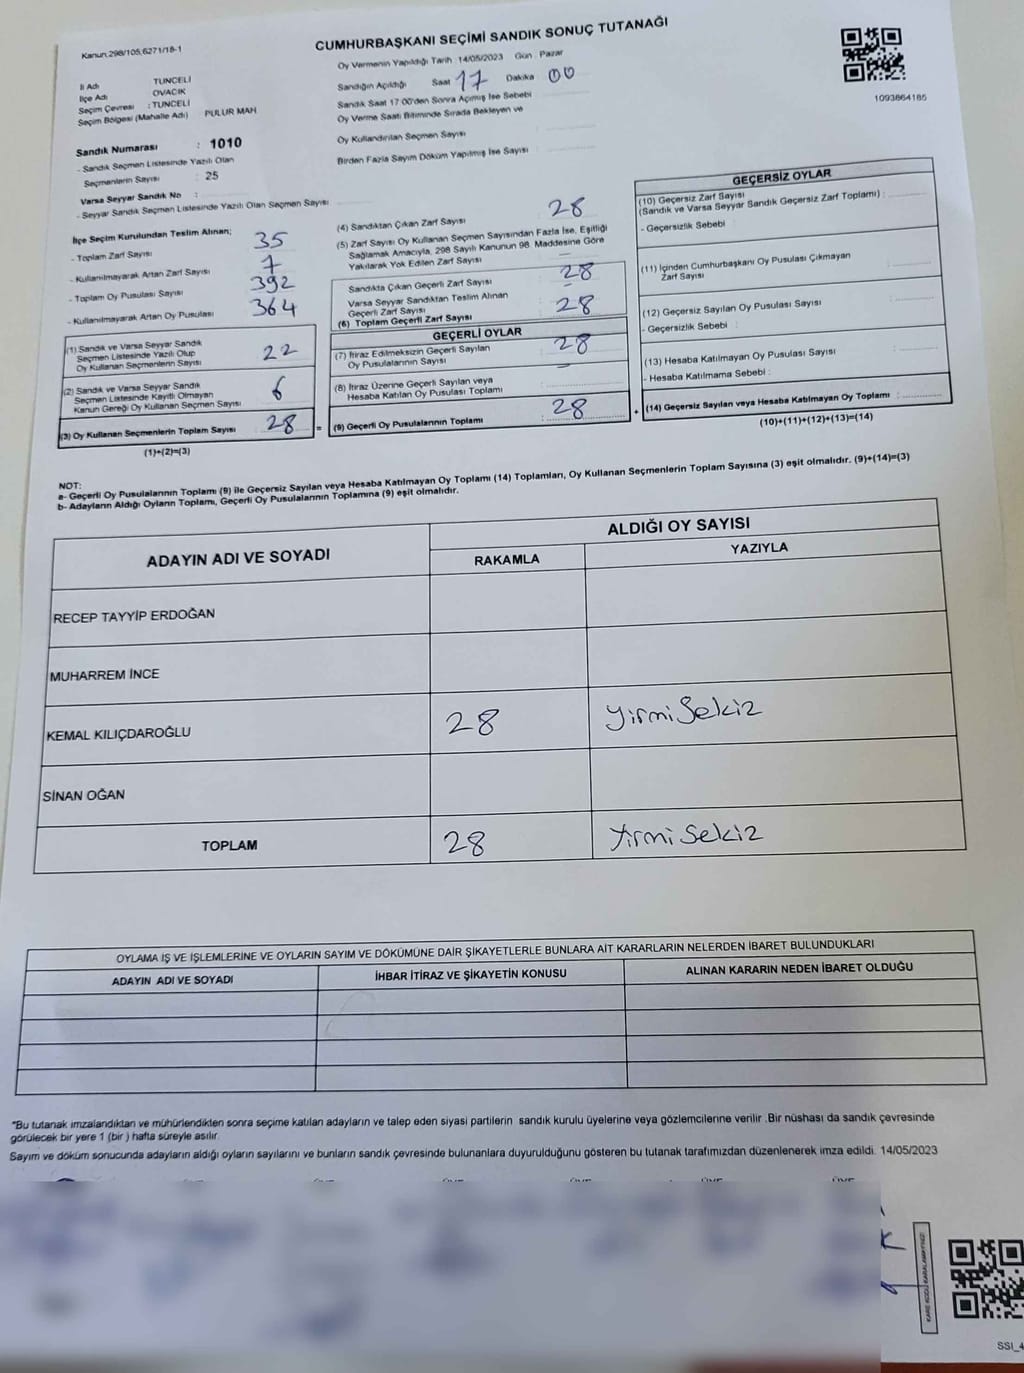 Kanun,298/105,6271/18-1
CUMHURBAŞKANI SEÇİMİ SANDIK SONUÇ TUTANAĞI
İl Adı TUNCELİ
İlçe Adı OVACIK
Seçim Çevresi : TUNCELİ
Seçim Bölgesi (Mahalle Adı) PULUR MAH
Sandık Numarası : 1010
- Sandık Seçmen Listesinde Yazılı Olan
Seçmenlerin Sayısı : 25
Varsa Seyyar Sandık No :
- Seyyar Sandık Seçmen Listesinde Yazılı Olan Seçmen Sayısı
Oy Vermenin Yapıldığı Tarih 14/05/2023 Gün : Pazar
Sandığın Açıldığı Saat 17 Dakika 00
Sandık Saat 17:00'den Sonra Açılmış İse Sebebi
Oy Verme Saati Bitiminde Sırada Bekleyen ve
Oy Kullandırılan Seçmen Sayısı
Birden Fazla Sayım Döküm Yapılmış İse Sayısı
1093864185
İlçe Seçim Kurulundan Teslim Alınan;
- Toplam Zarf Sayısı 35
- Kullanılmayarak Artan Zarf Sayısı 7
- Toplam Oy Pusulası Sayısı 392
- Kullanılmayarak Artan Oy Pusulası 364
(1) Sandık ve Varsa Seyyar Sandık
Seçmen Listesinde Yazılı Olup
Oy Kullanan Seçmenlerin Sayısı 22
(2) Sandık ve Varsa Seyyar Sandık
Seçmen Listesinde Kayıtlı Olmayan
Kanun Gereği Oy Kullanan Seçmen Sayısı 6
(3) Oy Kullanan Seçmenlerin Toplam Sayısı 28 =
(1)+(2)=(3)
(4) Sandıktan Çıkan Zarf Sayısı 28
(5) Zarf Sayısı Oy Kullanan Seçmen Sayısından Fazla İse, Eşitliği
Sağlamak Amacıyla, 298 Sayılı Kanunun 98. Maddesine Göre
Yakılarak Yok Edilen Zarf Sayısı —
Sandıkta Çıkan Geçerli Zarf Sayısı 28
Varsa Seyyar Sandıktan Teslim Alınan
Geçerli Zarf Sayısı —
(6) Toplam Geçerli Zarf Sayısı 28
GEÇERLİ OYLAR
(7) İtiraz Edilmeksizin Geçerli Sayılan
Oy Pusulalarının Sayısı 28
(8) İtiraz Üzerine Geçerli Sayılan veya
Hesaba Katılan Oy Pusulası Toplamı —
(9) Geçerli Oy Pusulalarının Toplamı 28 +
GEÇERSİZ OYLAR
(10) Geçersiz Zarf Sayısı
(Sandık ve Varsa Seyyar Sandık Geçersiz Zarf Toplamı) :
- Geçersizlik Sebebi :
(11) İçinden Cumhurbaşkanı Oy Pusulası Çıkmayan
Zarf Sayısı
(12) Geçersiz Sayılan Oy Pusulası Sayısı
- Geçersizlik Sebebi :
(13) Hesaba Katılmayan Oy Pusulası Sayısı
- Hesaba Katılmama Sebebi :
(14) Geçersiz Sayılan veya Hesaba Katılmayan Oy Toplamı :
(10)+(11)+(12)+(13)=(14)
NOT:
a- Geçerli Oy Pusulalarının Toplamı (9) ile Geçersiz Sayılan veya Hesaba Katılmayan Oy Toplamı (14) Toplamları, Oy Kullanan Seçmenlerin Toplam Sayısına (3) eşit olmalıdır. (9)+(14)=(3)
b- Adayların Aldığı Oyların Toplamı, Geçerli Oy Pusulalarının Toplamına (9) eşit olmalıdır.
ADAYIN ADI VE SOYADI
ALDIĞI OY SAYISI
RAKAMLA YAZIYLA
RECEP TAYYİP ERDOĞAN
MUHARREM İNCE
KEMAL KILIÇDAROĞLU 28 yirmi Sekiz
SİNAN OĞAN
TOPLAM 28 Yirmi Sekiz
OYLAMA İŞ VE İŞLEMLERİNE VE OYLARIN SAYIM VE DÖKÜMÜNE DAİR ŞİKAYETLERLE BUNLARA AİT KARARLARIN NELERDEN İBARET BULUNDUKLARI
ADAYIN ADI VE SOYADI İHBAR İTİRAZ VE ŞİKAYETİN KONUSU ALINAN KARARIN NEDEN İBARET OLDUĞU
"Bu tutanak imzalandıktan ve mühürlendikten sonra seçime katılan adayların ve talep eden siyasi partilerin sandık kurulu üyelerine veya gözlemcilerine verilir .Bir nüshası da sandık çevresinde
görülecek bir yere 1 (bir ) hafta süreyle asılır.
Sayım ve döküm sonucunda adayların aldığı oyların sayılarını ve bunların sandık çevresinde bulunanlara duyurulduğunu gösteren bu tutanak tarafımızdan düzenlenerek imza edildi. 14/05/2023
KARE KODU KARALAMAYINIZ!
SSI_4